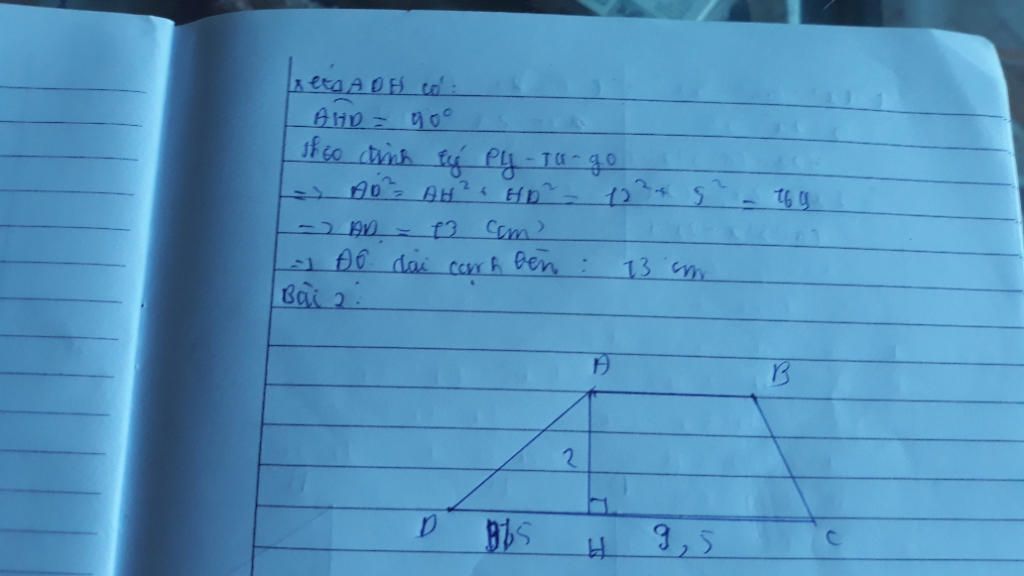 xét △ADH có:
AHD = 90°
theo định lý Py-Ta-go
=> AD² = AH² + HD² = 12² + 5² = 169
=> AD = 13 (cm)
=> Độ dài cạnh bên : 13 cm
Bài 2:
A B
2
D H 9,5 C